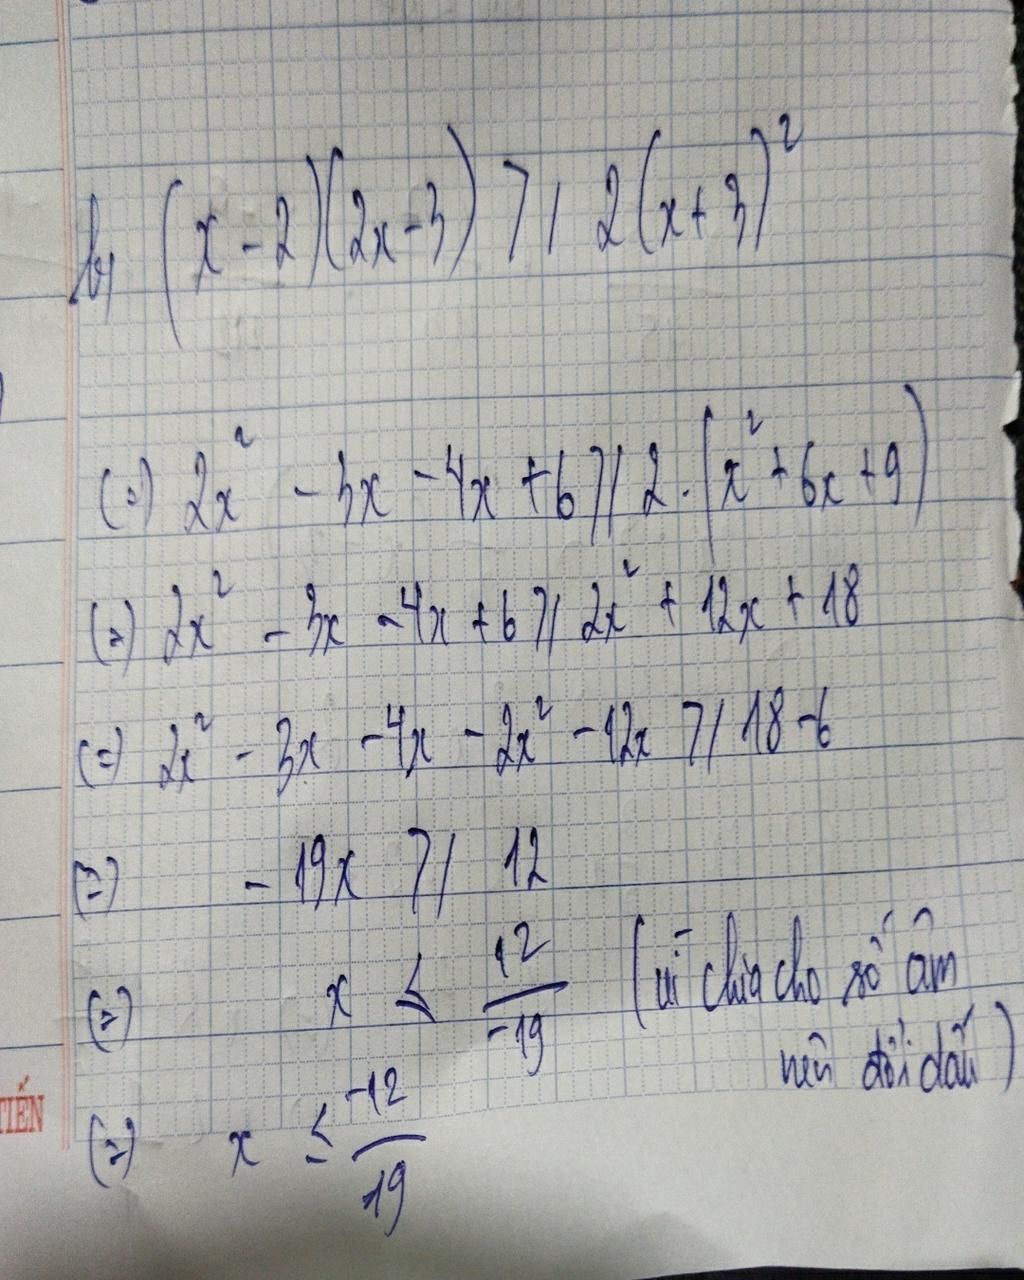 b, (x - 2)(2x - 3) ≥ 2(x + 3)²
(=) 2x² - 3x - 4x + 6 ≥ 2.(x² + 6x + 9)
(=) 2x² - 3x - 4x + 6 ≥ 2x² + 12x + 18
(=) 2x² - 3x - 4x - 2x² - 12x ≥ 18 - 6
(=) - 19x ≥ 12
(=) x ≤ 12/-19 (vì chia cho số âm
nên đổi dấu)
(=) x ≤ -12/19
TIẾN